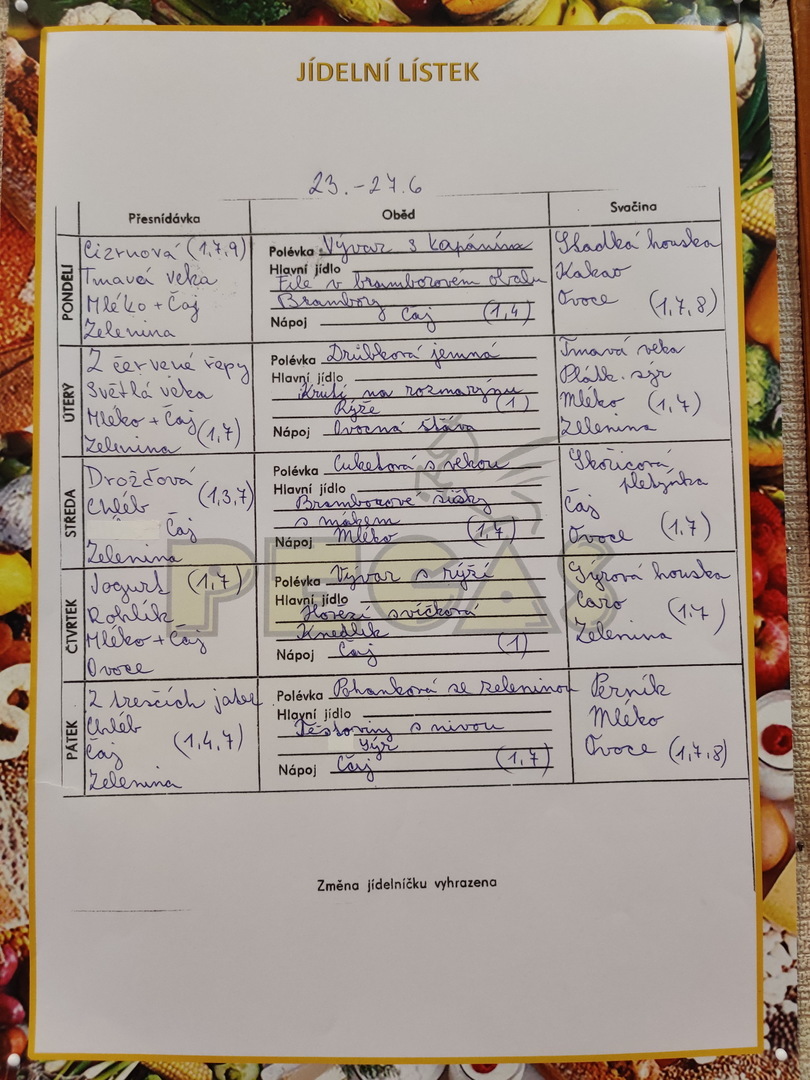 JÍDELNÍ LÍSTEK
23.-27.6
Přesnídávka
Oběd
Svačina
PONDĚLÍ
Cizrnová (1,7,9)
Tmavá veka
Mléko + Čaj
Zelenina
Polévka Vývar s kapáním
Hlavní jídlo
File v bramborovém obalu
Brambory
Nápoj Čaj (1,4)
Sladká houska
Kakao
Ovoce (1,7,8)
ÚTERÝ
Z červené řepy
Světlá veka
Mléko + Čaj
Zelenina (1,7)
Polévka Drůbková jemná
Hlavní jídlo
Krutí na rozmarýnu
Rýže (1)
Nápoj Ovocná šťáva
Tmavá veka
Plátk. sýr
Mléko (1,7)
Zelenina
STŘEDA
Drožďová
Chléb (1,3,7)
Čaj
Zelenina
Polévka Cuketová s vekou
Hlavní jídlo
Bramborové šišky
s mákem
Nápoj Mléko (1,7)
Skořicová
pletýnka
Čaj
Ovoce (1,7)
ČTVRTEK
Jogurt (1,7)
Rohlík
Mléko + Čaj
Ovoce
Polévka Vývar s rýží
Hlavní jídlo
Hovězí svíčková
Knedlík
Nápoj Čaj (1)
Sýrová houska
Caro (1,7)
Zelenina
PÁTEK
Z tresčích jater
Chléb
Čaj (1,4,7)
Zelenina
Polévka Pohanková se zeleninou
Hlavní jídlo
Těstoviny s nivou
Sýr
Nápoj Čaj (1,7)
Perník
Mléko
Ovoce (1,7,8)
PEGAS
Změna jídelníčku vyhrazena